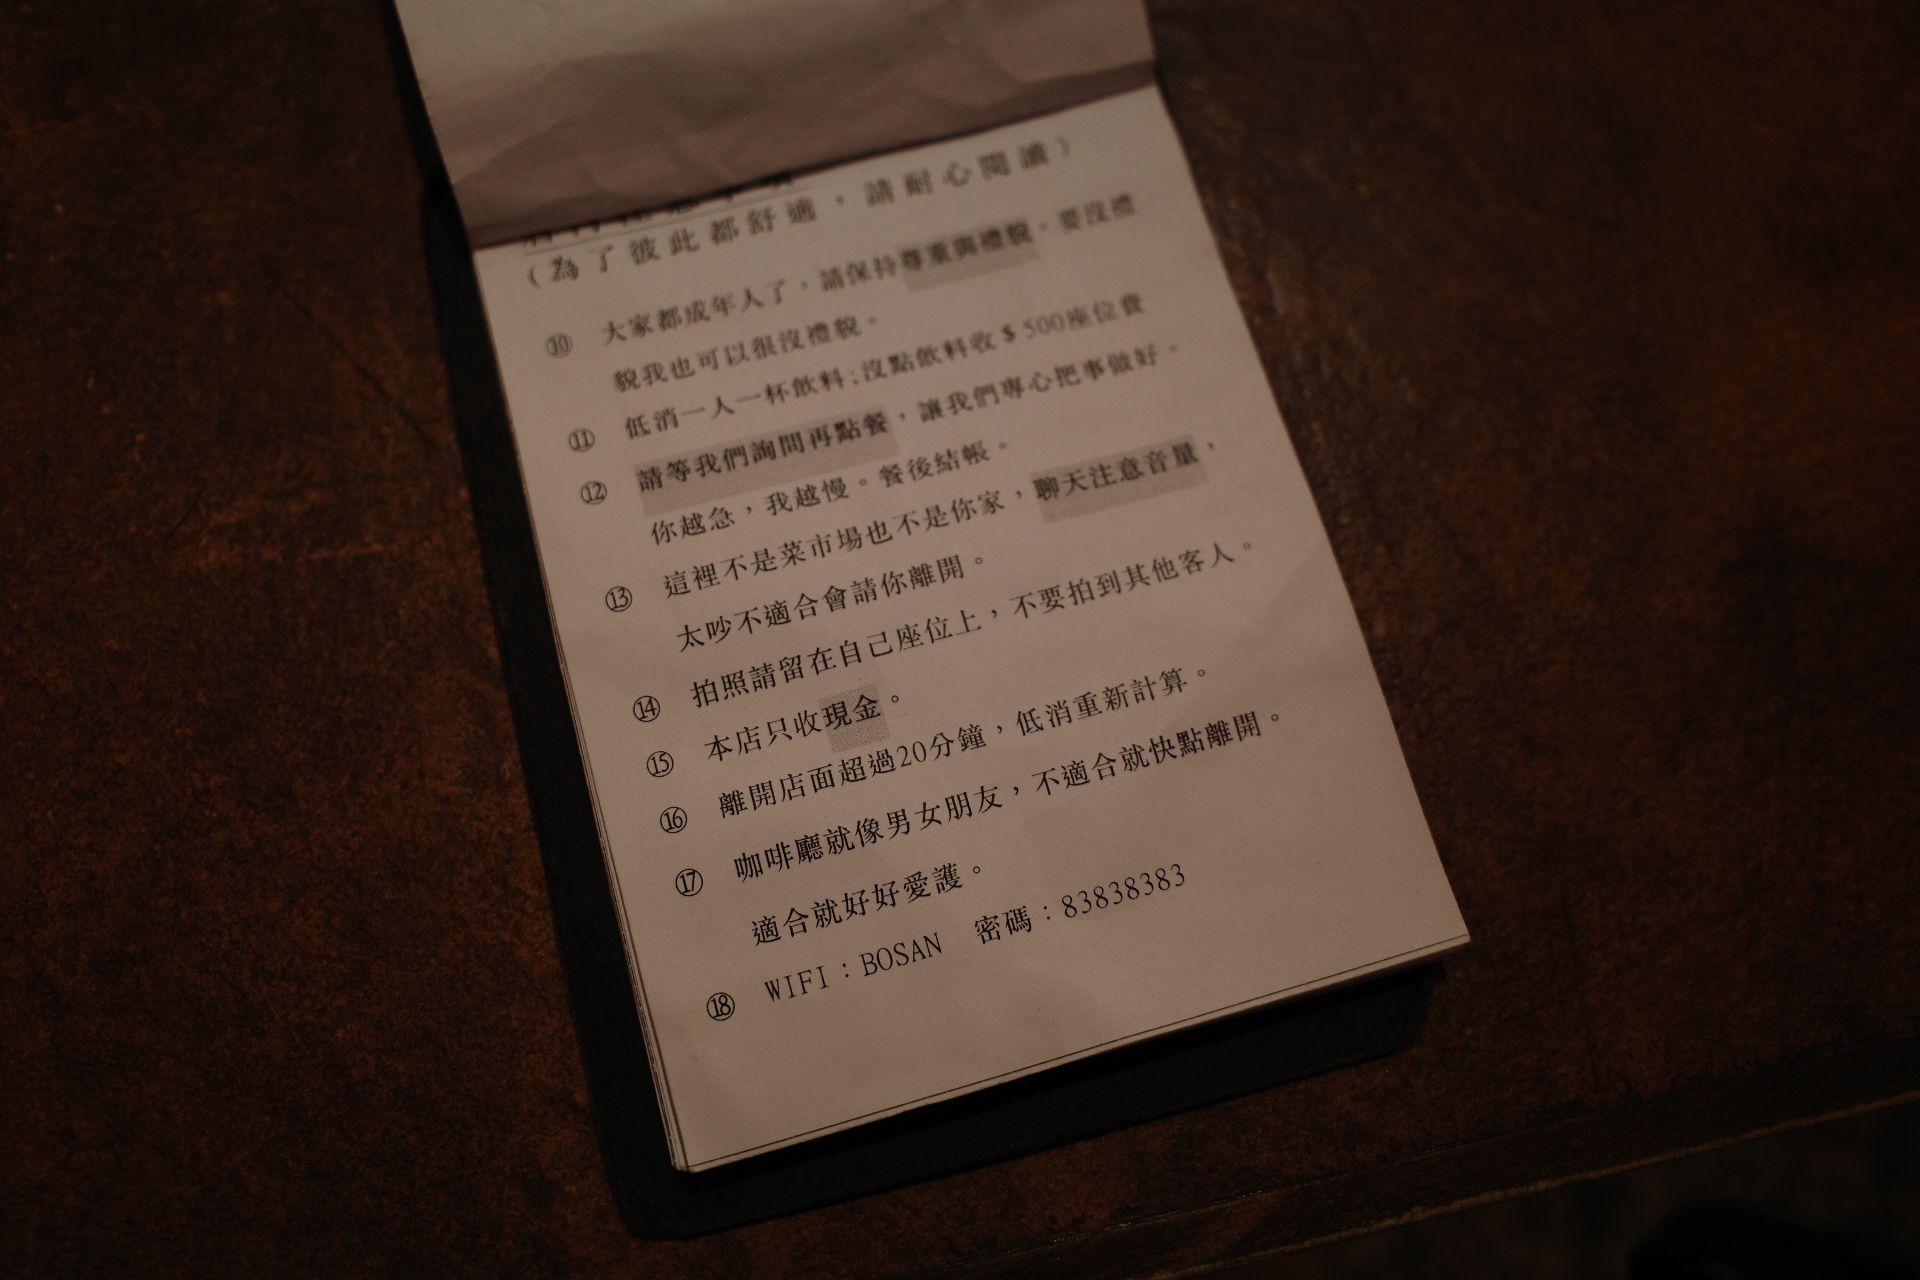 (為了彼此都舒適，請耐心閱讀)
⑩ 大家都成年人了，請保持尊重與禮貌。要沒禮
貌我也可以很沒禮貌。
⑪ 低消一人一杯飲料;沒點飲料收$500座位費
⑫ 請等我們詢問再點餐，讓我們專心把事做好。
你越急，我越慢。餐後結帳。
⑬ 這裡不是菜市場也不是你家，聊天注意音量，
太吵不適合會請你離開。
⑭ 拍照請留在自己座位上，不要拍到其他客人。
⑮ 本店只收現金。
⑯ 離開店面超過20分鐘，低消重新計算。
⑰ 咖啡廳就像男女朋友，不適合就快點離開。
適合就好好愛護。
⑱ WIFI：BOSAN 密碼：83838383